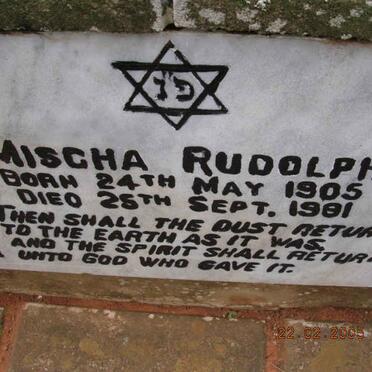 פ״נ
MISCHA RUDOLPH
BORN 24TH MAY 1905
DIED 25TH SEPT. 1981
THEN SHALL THE DUST RETURN
TO THE EARTH AS IT WAS.
AND THE SPIRIT SHALL RETURN
UNTO GOD WHO GAVE IT.
22.02.2005